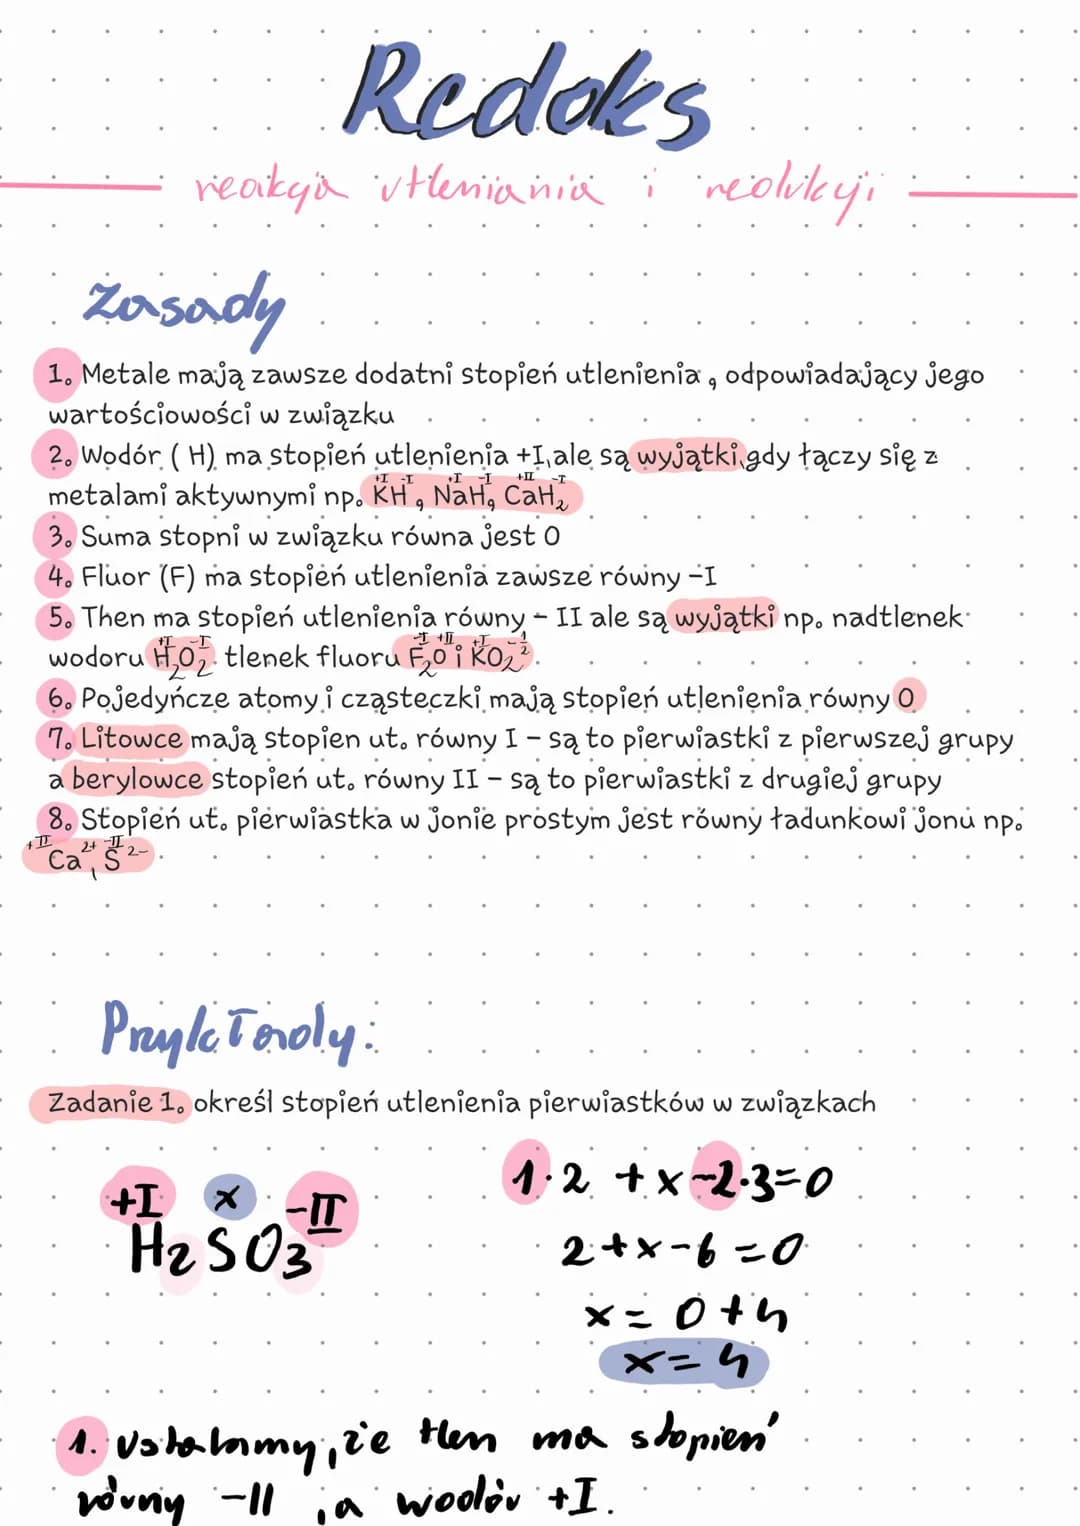 Redoks
reakcja utleniania i redukcji
Zasady
1. Metale mają zawsze dodatni stopień utlenienia, odpowiadający jego
wartościowości w związku
2. Wodór (H) ma stopień utlenienia +I, ale są wyjątki gdy łączy się z
metalami aktywnymi np. K⁺ᴵH⁻ᴵ, Na⁺ᴵH⁻ᴵ, Ca⁺ᴵᴵH₂⁻ᴵ
3. Suma stopni w związku równa jest 0
4. Fluor (F) ma stopień utlenienia zawsze równy -I
5. Then ma stopień utlenienia równy - II ale są wyjątki np. nadtlenek
wodoru H₂⁺ᴵO₂⁻ᴵ tlenek fluoru F₂⁻ᴵO⁺ᴵᴵ i K⁺ᴵO₂⁻½
6. Pojedyńcze atomy i cząsteczki mają stopień utlenienia równy 0
7. Litowce mają stopien ut. równy I - są to pierwiastki z pierwszej grupy
a berylowce stopień ut. równy II - są to pierwiastki z drugiej grupy
8. Stopień ut. pierwiastka w jonie prostym jest równy ładunkowi jonu np.
+II Ca²⁺, -II S²⁻
Przykłady:
Zadanie 1. określ stopień utlenienia pierwiastków w związkach
+I x -II
H2SO3
1·2 + x -2·3=0
2+x-6=0
x= 0+4
x=4
1. Ustalamy, że tlen ma stopień
równy -II, a wodór +I.